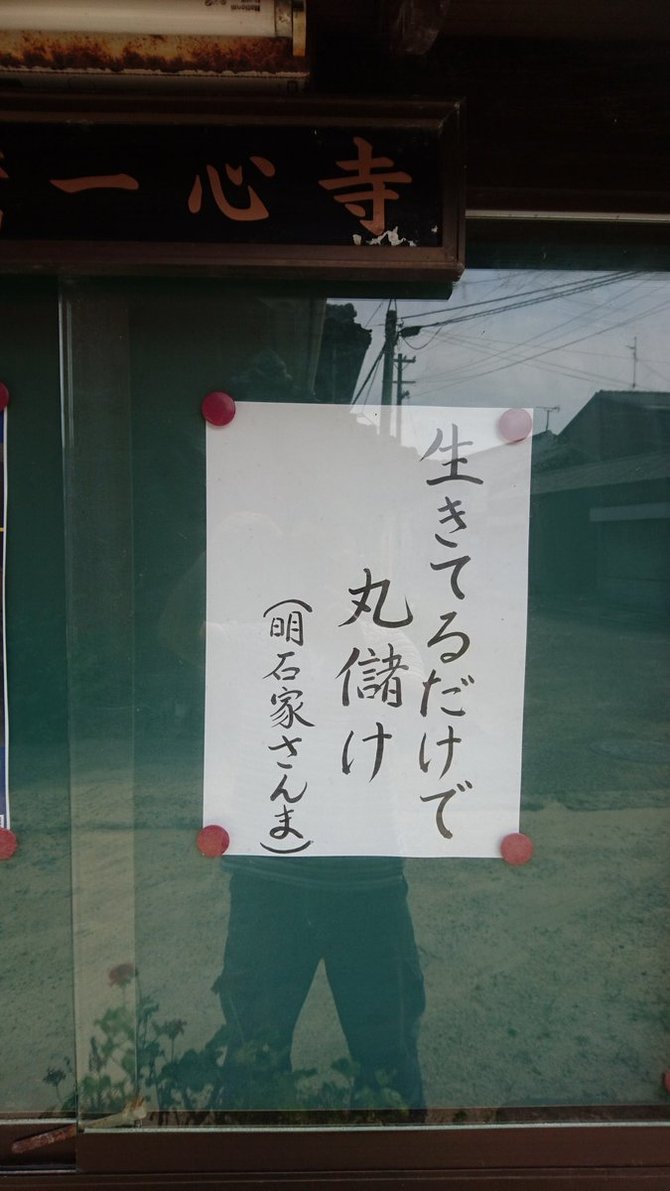 一心寺
生きてるだけで
丸儲け
(明石家さんま)
National